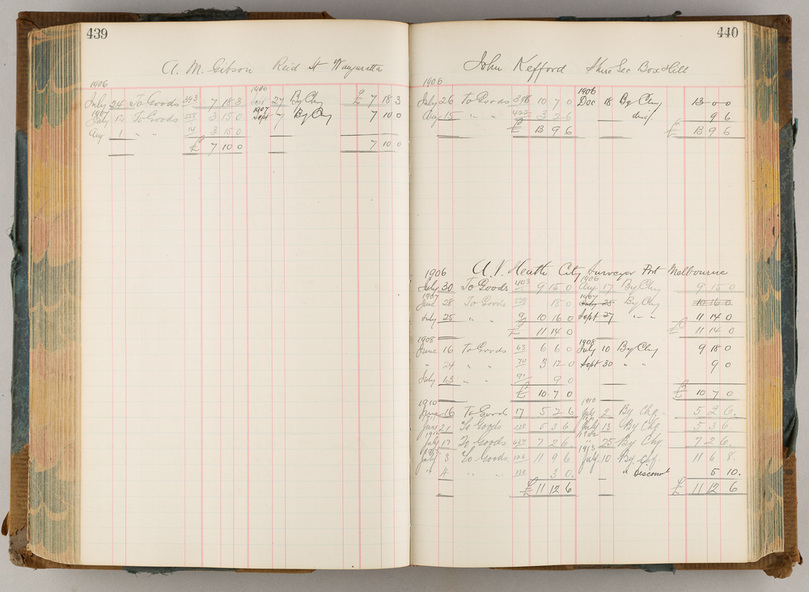 439
A. M. Gibson Reid St Wangaratta
1906
July 24 To Goods 7 18 3 27 By Chq £ 7 18 3
1907 1907
14 To Goods 3 15 0 Sept 7 By Chq 7 10 0
Aug 1 " " 3 15 0
£ 7 10 0 7 10 0
440
John Kefford Shire Sec Box Hill
1906 1906
July 26 To Goods 10 7 0 Dec 18 By Chq 13 0 0
Aug 15 " " 3 2 6 9 6
£ 13 9 6 £ 13 9 6
A. V. Heath City Surveyor Port Melbourne
1906 1906
July 30 To Goods 403 9 15 0 Aug 17 By Chq 9 15 0
1907 1907
28 To Goods 18 0 July 25 By Chq 10 16 0
July 25 " " 10 16 0 Sept 27 " " 11 14 0
£ 11 14 0 £ 11 14 0
1908 1908
June 16 To Goods 63 6 6 0 July 10 By Chq 9 18 0
" 24 " " 3 12 0 Sept 30 " " 9 0
July 13 " " 9 0
£ 10 7 0 £ 10 7 0
1910 1910
16 To Goods 17 5 2 6 July 2 By Chq 5 2 6
21 To Goods 5 3 6 13 By Chq 5 3 6
July 17 To Goods 7 2 6 25 By Chq 7 2 6
July 3 To Goods 11 9 6 July 10 By Chq 11 6 8
" " 3 0 " Discount 5 10
£ 11 12 6 £ 11 12 6